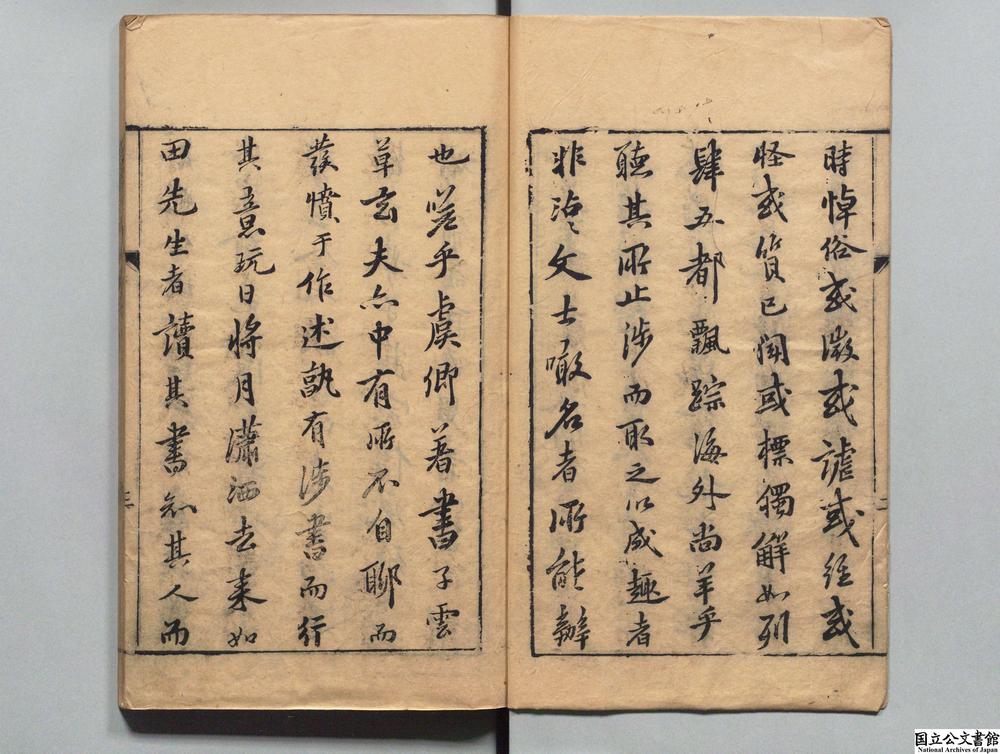 時悼俗或激或謔或經或
怪或質已聞或標獨解如列
肆五都飄踪海外尚羊乎
聽其所止涉而取之以成趣者
非沾沾文士噉名者所能辦
也嗟乎虞卿著書子雲
草玄夫亦中有所不自聊而
發憤于作述孰有涉書而行
其意玩日將月瀟洒去来如
田先生者讀其書知其人而
二
三
国立公文書館
National Archives of Japan